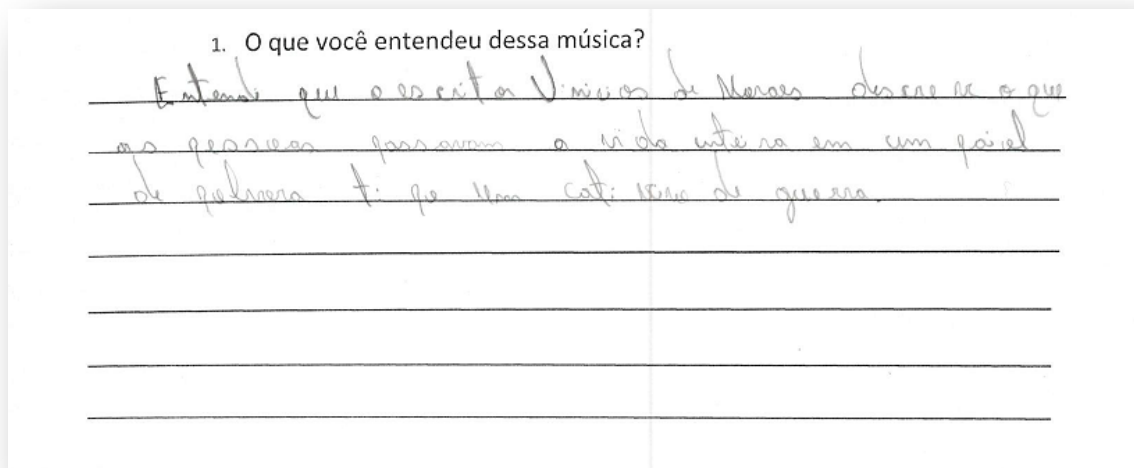 1. O que você entendeu dessa música?
Entendi que o escritor Vinicios de Moraes descreve o que
as pessoas passavam a vida inteira em um
de tipo um cativeiro de guerra.